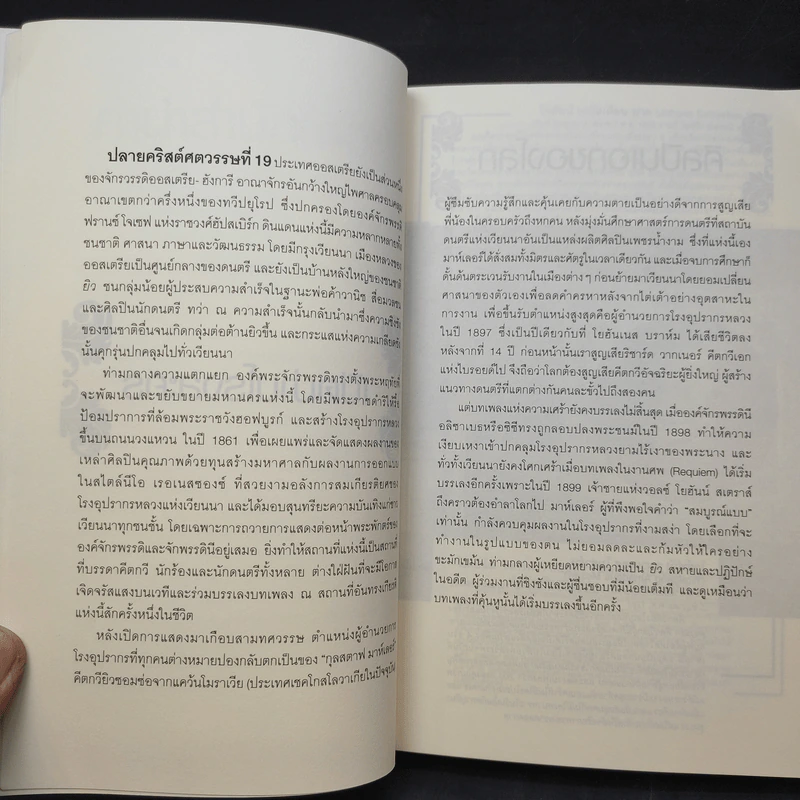 ปลายคริสต์ศตวรรษที่ 19 ประเทศออสเตรียยังเป็นส่วนหนึ่ง
ของจักรวรรดิออสเตรีย- ฮังการี อาณาจักรอันกว้างใหญ่ไพศาลครอบคลุม
อาณาเขตกว่าครึ่งหนึ่งของทวีปยุโรป ซึ่งปกครองโดยองค์จักรพรรดิ
ฟรานซ์ โจเซฟ แห่งราชวงศ์ฮัปสเบิร์ก ดินแดนแห่งนี้มีความหลากหลายทั้ง
ชนชาติ ศาสนา ภาษาและวัฒนธรรม โดยมีกรุงเวียนนา เมืองหลวงของ
ออสเตรียเป็นศูนย์กลางของดนตรี และยังเป็นบ้านหลังใหญ่ของชนชาติ
ยิว ชนกลุ่มน้อยผู้ประสบความสำเร็จในฐานะพ่อค้าวานิช สื่อมวลชน
และศิลปินนักดนตรี ทว่า ณ ความสำเร็จนั้นกลับนำมาซึ่งความชิงชัง
ของชนชาติอื่นจนเกิดกลุ่มต่อต้านยิวขึ้น และกระแสแห่งความเกลียดชัง
นั้นคุกรุ่นปกคลุมไปทั่วเวียนนา
ท่ามกลางความแตกแยก องค์พระจักรพรรดิทรงตั้งพระหฤทัยที่
จะพัฒนาและขยับขยายมหานครแห่งนี้ โดยมีพระราชดำริให้รื้อ
ป้อมปราการที่ล้อมพระราชวังฮอฟบูรก์ และสร้างโรงอุปรากรหลวง
ขึ้นบนถนนวงแหวน ในปี 1861 เพื่อเผยแพร่และจัดแสดงผลงานของ
เหล่าศิลปินคุณภาพด้วยทุนสร้างมหาศาลกับผลงานการออกแบบ
ในสไตล์นีโอ เรอเนสซองซ์ ที่สวยงามอลังการสมเกียรติยศของ
โรงอุปรากรหลวงแห่งเวียนนา และได้มอบสุนทรียะความบันเทิงแก่ชาว
เวียนนาทุกชนชั้น โดยเฉพาะการถวายการแสดงต่อหน้าพระพักตร์ของ
องค์จักรพรรดิและจักพรรดินีอยู่เสมอ ยิ่งทำให้สถานที่แห่งนี้เป็นสถานที่
ที่บรรดาคีตกวี นักร้องและนักดนตรีทั้งหลาย ต่างใฝ่ฝันที่จะมีโอกาส
เจิดจรัสแสงบนเวทีและร่วมบรรเลงบทเพลง ณ สถานที่อันทรงเกียรติ
แห่งนี้สักครั้งหนึ่งในชีวิต
หลังเปิดการแสดงมาเกือบสามทศวรรษ ตำแหน่งผู้อำนวยการ
โรงอุปรากรที่ทุกคนต่างหมายปองกลับตกเป็นของ “กุสตาฟ มาห์เลอร์”
คีตกวียิวซอมซ่อจากแคว้นโมราเวีย (ประเทศเชคโกสโลวาเกียในปัจจุบัน)
ผู้ซึมซับความรู้สึกและคุ้นเคยกับความตายเป็นอย่างดีจากการสูญเสีย
พี่น้องในครอบครัวถึงหกคน หลังมุ่งมั่นศึกษาศาสตร์การดนตรีที่สถาบัน
ดนตรีแห่งเวียนนาอันเป็นแหล่งผลิตศิลปินเพชรน้ำงาม ซึ่งที่แห่งนี้เอง
มาห์เลอร์ได้สั่งสมทั้งมิตรและศัตรูในเวลาเดียวกัน และเมื่อจบการศึกษาก็
ดั้นด้นตระเวนรับงานในเมืองต่าง ๆ ก่อนย้ายมาเวียนนาโดยยอมเปลี่ยน
ศาสนาของตัวเองเพื่อลดคำครหาหลังจากไต่เต้าอย่างอุตสาหะใน
การงาน เพื่อขึ้นรับตำแหน่งสูงสุดคือผู้อำนวยการโรงอุปรากรหลวง
ในปี 1897 ซึ่งเป็นปีเดียวกับที่ โยฮันเนส บราห์ม ได้เสียชีวิตลง
หลังจากที่ 14 ปี ก่อนหน้านั้นเราสูญเสียริชาร์ด วากเนอร์ คีตกวีเอก
แห่งไบรอยด์ไป จึงถือว่าโลกต้องสูญเสียคีตกวีอัจฉริยะผู้ยิ่งใหญ่ ผู้สร้าง
แนวทางดนตรีที่แตกต่างกันคนละขั้วไปถึงสองคน
แต่บทเพลงแห่งความเศร้ายังคงบรรเลงไม่สิ้นสุด เมื่อองค์จักรพรรดินี
อลิซาเบธหรือซิซีทรงถูกลอบปลงพระชนม์ในปี 1898 ทำให้ความ
เงียบเหงาเข้าปกคลุมโรงอุปรากรหลวงยามไร้เงาของพระนาง และ
ทั่วทั้งเวียนนายังคงโศกเศร้าเมื่อบทเพลงในงานศพ (Requiem) ได้เริ่ม
บรรเลงอีกครั้งเพราะในปี 1899 เจ้าชายแห่งวอลซ์ โยฮันน์ สเตราส์
ถึงคราวต้องอำลาโลกไป มาห์เลอร์ ผู้ที่พึงพอใจคำว่า “สมบูรณ์แบบ”
เท่านั้น กำลังควบคุมผลงานในโรงอุปรากรที่งามสง่า โดยเลือกที่จะ
ทำงานในรูปแบบของตน ไม่ยอมลดละและก้มหัวให้ใครอย่าง
ขะมักเขม้น ท่ามกลางผู้เหยียดหยามความเป็น ยิว สหายและปฏิปักษ์
ในอดีต ผู้ร่วมงานที่ชิงชังและผู้ชื่นชอบที่มีน้อยเต็มที และดูเหมือนว่า
บทเพลงที่คุ้นหูนั้นได้เริ่มบรรเลงขึ้นอีกครั้ง